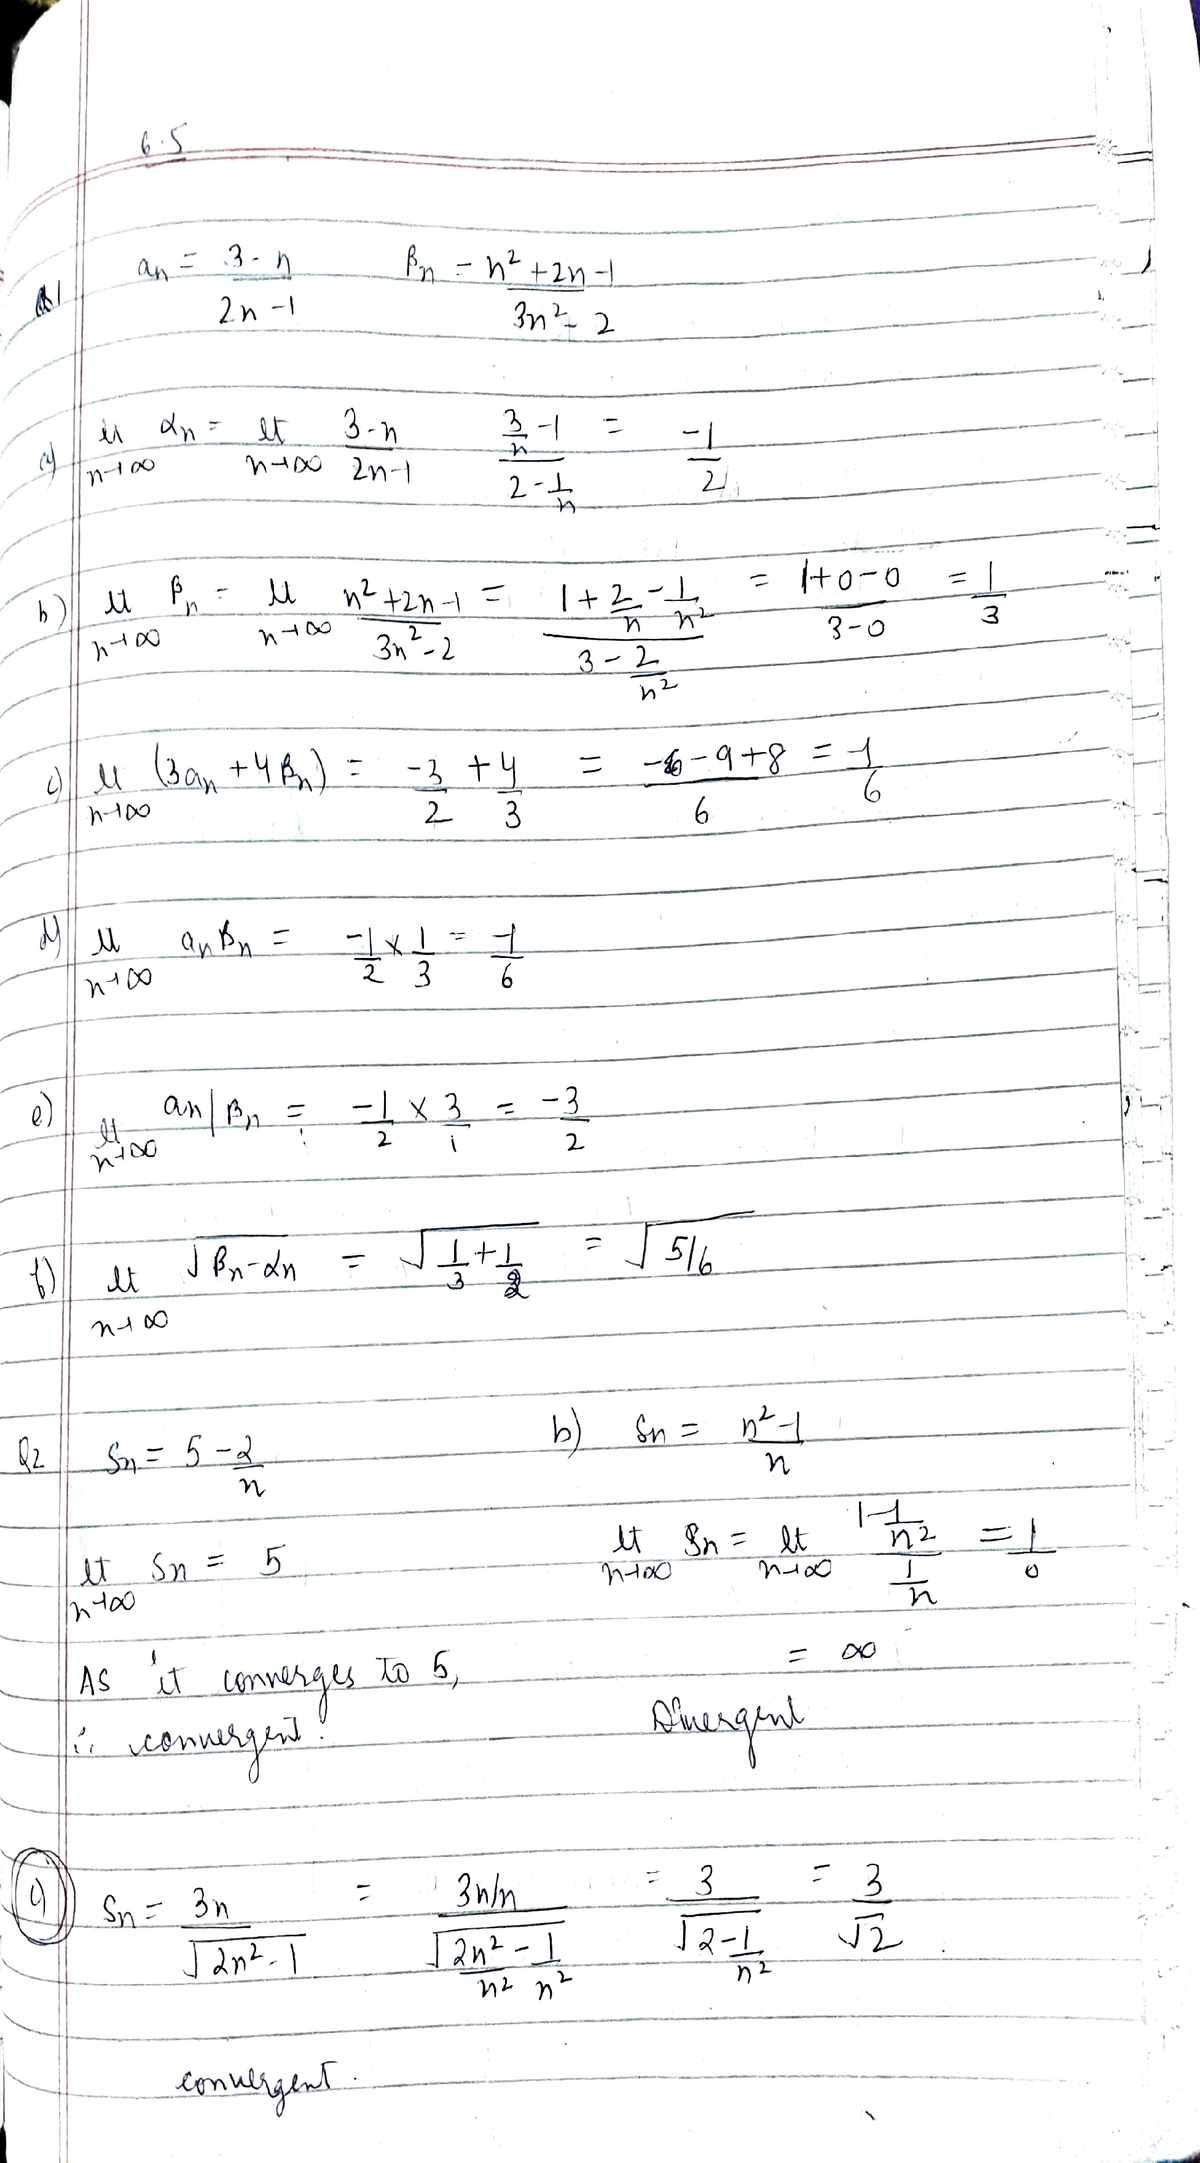 6.5
Q1 an = 3-n / 2n-1   βn = n² + 2n - 1 / 3n² - 2
a) lt n→∞ αn = lt n→∞ 3-n / 2n-1   3/n - 1 / 2 - 1/n = -1/2
b) lt n→∞ βn = lt n→∞ n² + 2n - 1 / 3n² - 2 = 1 + 2/n - 1/n² / 3 - 2/n² = 1+0-0 / 3-0 = 1/3
c) lt n→∞ (3an + 4βn) = -3/2 + 4/3 = -9+8 / 6 = -1/6
d) lt n→∞ an βn = -1/2 × 1/3 = -1/6
e) lt n→∞ an/βn = -1/2 × 3/1 = -3/2
f) lt n→∞ √(βn - αn) = √(1/3 + 1/2) = √(5/6)
Q2 Sn = 5 - 2/n
lt n→∞ Sn = 5
As it converges to 5,
∴ convergent.
b) Sn = n² - 1 / n
lt n→∞ Sn = lt n→∞ 1 - 1/n² / 1/n = 1/0
= ∞
Divergent
c) Sn = 3n / √(2n² - 1) = 3n/n / √(2n²/n² - 1/n²) = 3 / √(2 - 1/n²) = 3/√2
convergent.